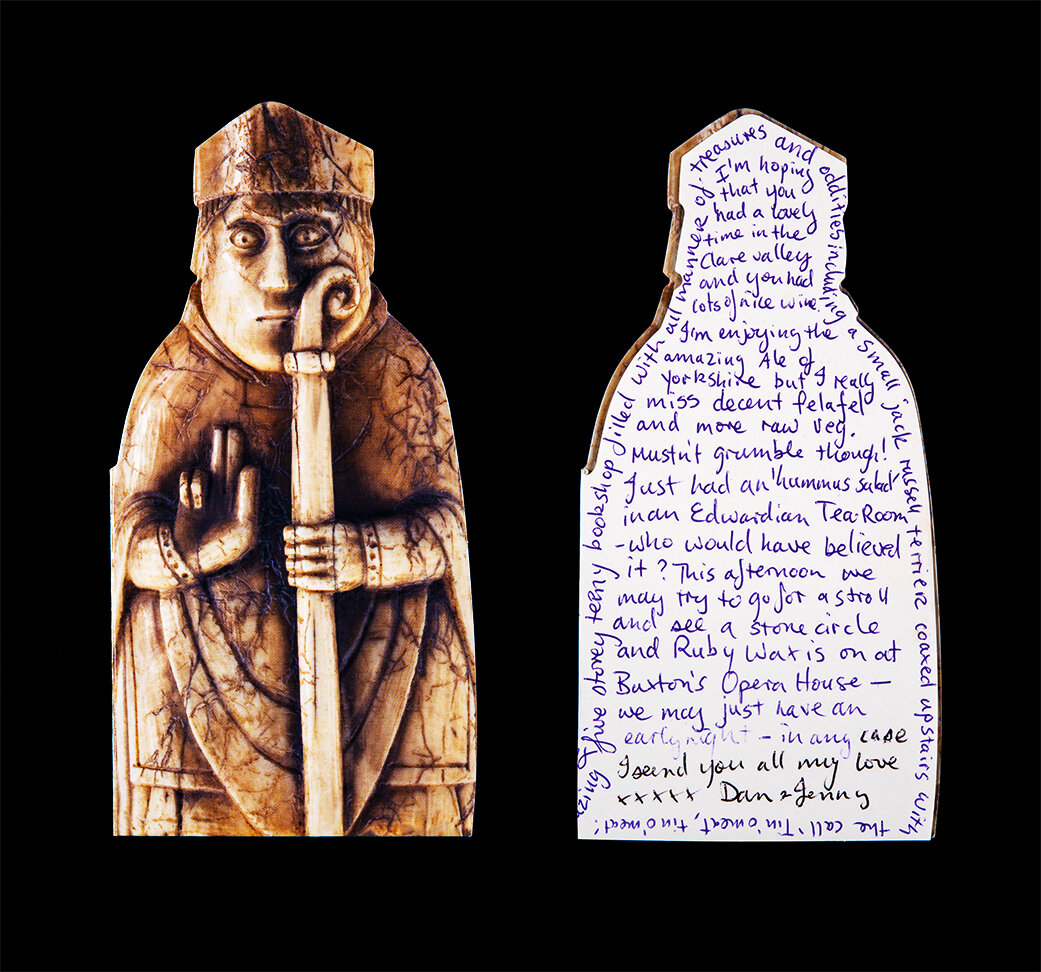 I'm hoping
that you
had a lovely
time in the
Clare valley
and you had
lots of nice wine.
I'm enjoying the
amazing Ale of
Yorkshire but I really
miss decent felafel
and more raw veg.
Mustn't grumble though!
Just had an 'hummus salad'
in an Edwardian Tea-Room
- who would have believed
it? This afternoon we
may try to go for a stroll
and see a stone circle
and Ruby Wax is on at
Buxton's Opera House -
we may just have an
early night - in any case
I send you all my love
xxxxx Dan & Jenny
five storey teeny bookshop filled with all manner of treasures and oddities including a small jack russell terrier coaxed upstairs with the call 'Tin 'o meat, tin 'o meat!'